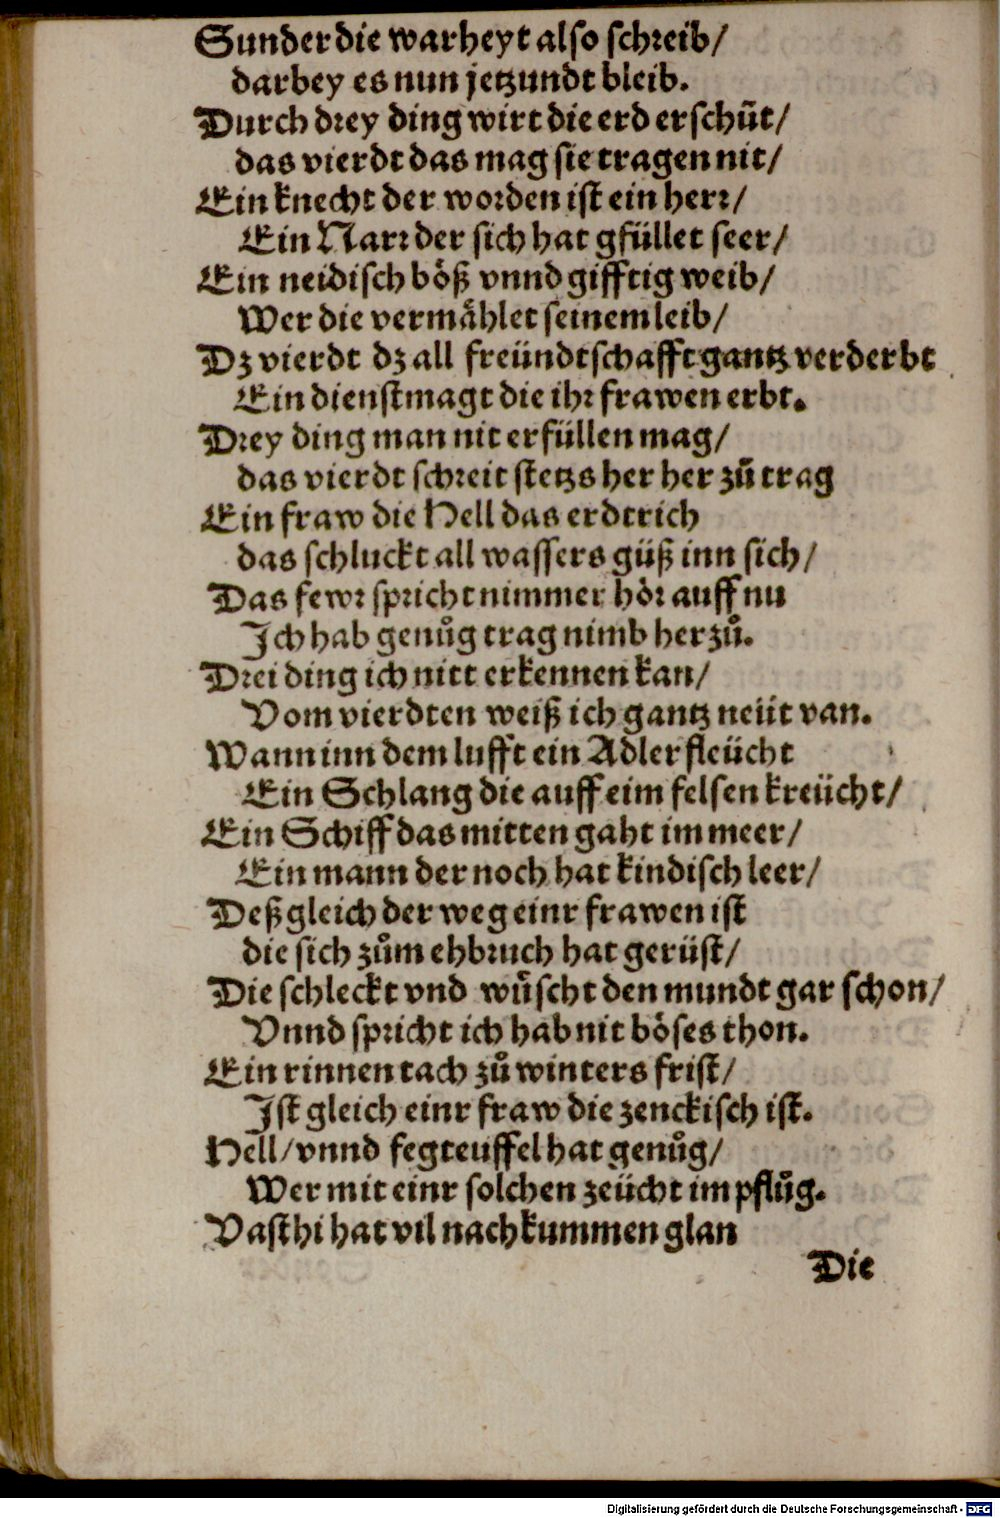 Sunder die warheyt also schreib/
darbey es nun jetzundt bleib.
Durch drey ding wirt die erd erschüt/
das vierdt das mag sie tragen nit/
Ein knecht der worden ist ein herr/
Ein Narr der sich hat gfüllet seer/
Ein neidisch böß vnnd gifftig weib/
Wer die vermählet seinem leib/
Dz vierdt dz all freündtschafft gantz verderbt
Ein dienstmagt die ihr frawen erbt.
Drey ding man nit erfüllen mag/
das vierdt schreit stetzs her her zů trag
Ein fraw die Hell das erdtrich
das schluckt all wassers güß inn sich/
Das fewr spricht nimmer hör auff nu
Ich hab genůg trag nimb herzů.
Drei ding ich nitt erkennen kan/
Vom vierdten weiß ich gantz neüt van.
Wann inn dem lufft ein Adler fleücht
Ein Schlang die auff eim felsen kreücht/
Ein Schiff das mitten gaht im meer/
Ein mann der noch hat kindisch leer/
Deß gleich der weg einr frawen ist
die sich zům ehbruch hat gerüst/
Die schleckt vnd wüscht den mundt gar schon/
Vnnd spricht ich hab nit böses thon.
Ein rinnen tach zů winters frist/
Ist gleich einr fraw die zenckisch ist.
Hell/vnnd fegteuffel hat genůg/
Wer mit einr solchen zeücht im pflůg.
Vasthi hat vil nachkummen glan
Die
Digitalisierung gefördert durch die Deutsche Forschungsgemeinschaft - DFG